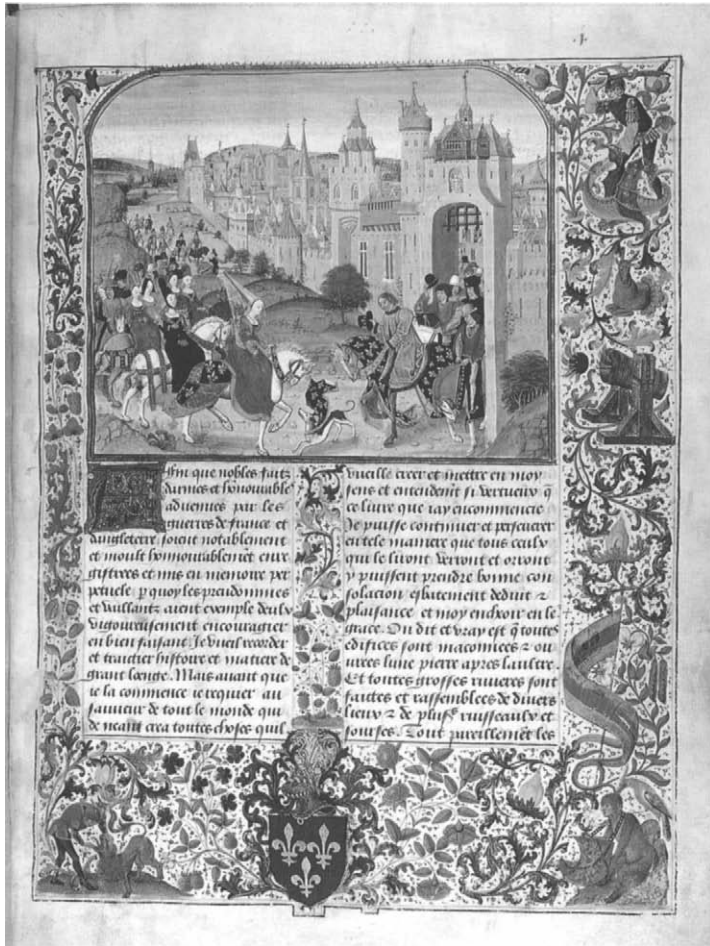 Afin que nobles faitz
darmes et honourable
aduenues par les
guerres de france et
dangleterre soient notablement
et moult honnourablemēt enre
gistrees et mis en memoire per
petuele p quoy les preudommes
et vaillantz aient exemple deulx
vigoureusement encouragier
en bien faisant Je vueil recorder
et traittier histoire et matiere de
grant loenge. Mais auant que
ie la commence ie requier au
sauueur de tout le monde qui
de neant crea toutes choses quil
vueille creer et mettre en moy
sens et entendemēt si vertueux q̄
ce liure que iay encommencie
Je puisse continuer et perseuerer
en tele maniere que tous ceulx
qui le liront verront et orront
y puissent prendre bonne con
solacion esbatement deduit ⁊
plaisance et moy encheoir en le
grace. On dit et vray est q̄ toutes
edifices sont maconnees ⁊ ou
urees lune pierre apres laultre.
Et toutes grosses riuieres sont
faittes et rassemblees de diuers
lieux ⁊ de plusꝭ ruisseaulx et
sourses. Tout pareillemēt les